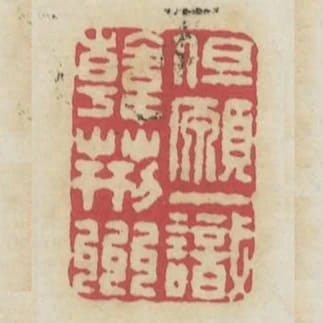 但願一識
韓荊州